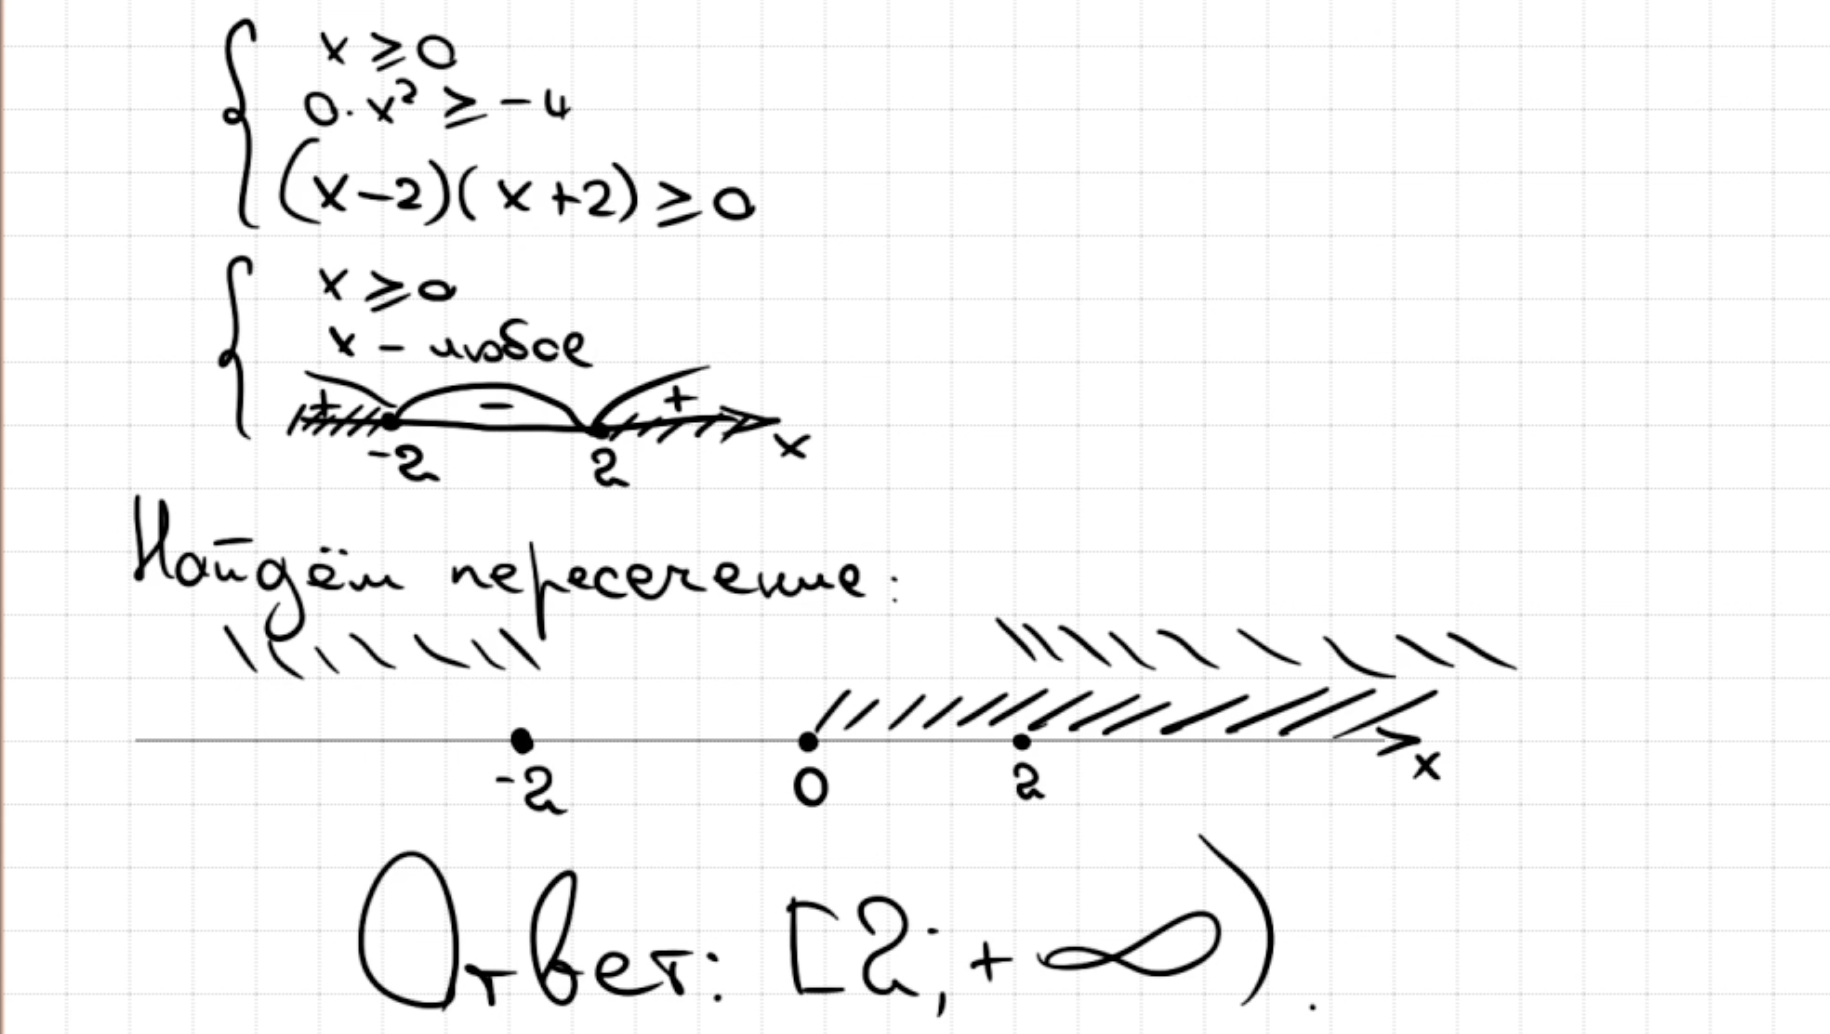 x ⩾ 0
0·x² ≥ -4
(x-2)(x+2) ≥ 0
x ⩾ 0
x - любое
+ - +
-2 2 x
Найдём пересечение:
-2 0 2 x
Ответ: [2; +∞).